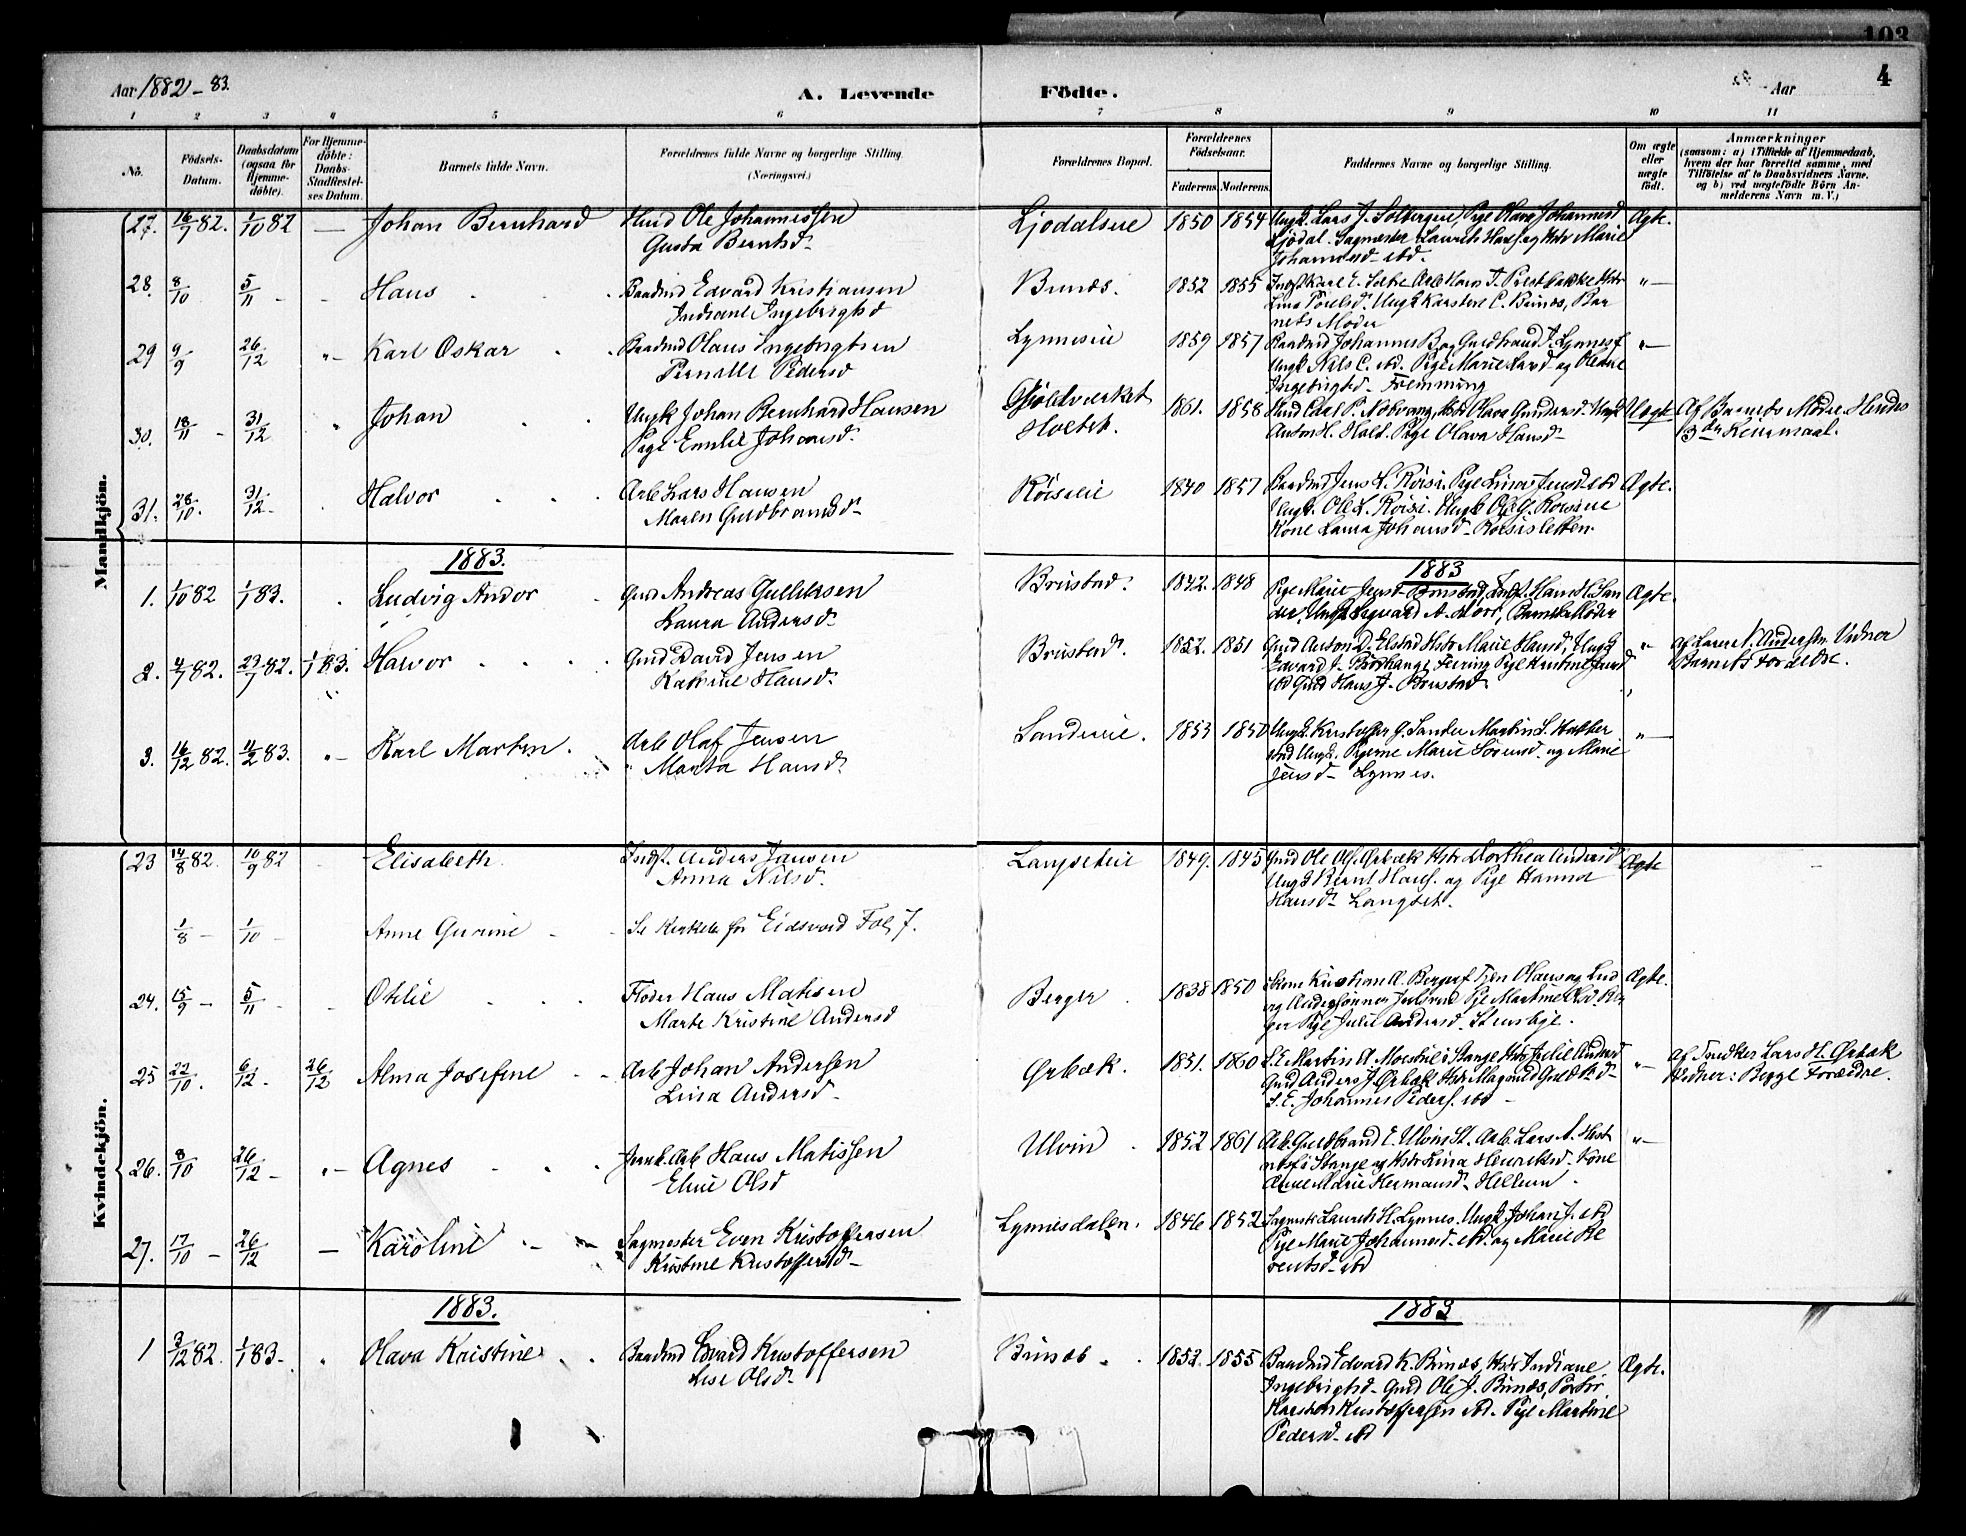 103
4
Aar 1882-83.
A. Levende Födte.
Aar
1 2 3 4 5 6 7 8 9 10 11
No.
Födsels-Datum.
Daabsdatum (ogsaa for Hjemmedöbte).
For Hjemmedöbte: Daabs-Stadfæstelses Datum.
Barnets fulde Navn.
Forældrenes fulde Navne og borgerlige Stilling. (Næringsvei.)
Forældrenes Bopæl.
Forældrenes Födselsaar.
Faderens. Moderens.
Faddernes Navne og borgerlige Stilling.
Om ægte eller uægte födt.
Anmærkninger (saasom: a) i Tilfælde af Hjemmedaab, hvem der har forrettet samme, med Tilföielse af to Daabsvidners Navne. og b) ved uægtefödte Börn Anmelderens Navn m. V.)
Mandkjön.
27. 16/9 82. 1/10 82 — Johan Bernhard
Husd Ole Johannessen
Gusta Berntsd.
Ljødalseie 1850 1854
Ungk. Lars J. Solbergeie, Pige Olava Johannesd
Ljødal. Sagmester Laurits Hansf og Hstr Marie
Johannesd ibd.
Ægte.
28. 8/10 5/11 - - Hans
Baadmd Edvard Kristiansen
Indiane Ingebrigtsd
Bunæs. 1852 1855
Lina Torelsd. Ungk Karsten C. Bunæs, Bar
nets Moder
"—
29 9/9 26/12 "- Karl Oskar
Baadmd Olaus Ingebrigtsen
Pernille Pedersd
Lynneseie 1859 1857
Ungk Nils C. ibd. Pige Marie Larsd og Oleane
Ingebrigtsd - Fremming
"—
30. 18/11 - 31/12 " Johan
Ungk Johan Bernhard Hansen
Pige Emilie Johansd.
1861. 1858
Anton H. Holt. Pige Olava Hansd-
Uægte
Af Barnets Moder Hendes
3die Leiermaal.
31. 28/10. 31/12. . Halvor
Arb Lars Hansen
Maren Guldbrandsd-
Røiseie 1840 1857
Baadmd Jens L. Røise. Pige Lina Jensd ibd
Ungk. Ole L. Røise. Ungk Ole G. Røiseeie
Kone Laura Johansd. Røisesletten
Ægte.
1883. 1883
1. 1/10 82 1/1 83. . Ludvig Andor
Gmd Andreas Gulliksen
Laura Andersd.
Brustad. 1842. 1848
Pige Marie Jensd Brustad, Indf. Hans H. San
der, Ungk Sigvard A. Hoel, Barnets Moder
Ægte.
2. 4/7 82. 23/7 82. 1/1 83. Halvor
Gmd David Jensen
Katrine Hansd.
Brustad. 1852. 1851
Gmd Anton D. Elstad Hstr Marie Hansd, Ungk
ibd Gmd Hans J. Brustad
"
Barnets Forældre.
3. 16/12 82. 11/2 83. "- Karl Martin.
Arb Olaf Jensen
" Marta Hansd.
Sandereie. 1853 1850
Ungk. Kristoffer G. Sander Martin S. Hatter
stad Ungk. Pigerne Marie Sørensd. og Marie
Jensd - Lynnes.
"—
Kvindekjön.
23 14/8 82. 10/9 82 - Elisabeth
Indf. Anders Jansen
Anna Nilsd.
Langseteie 1849. 1845
Gmd Ole Olf. Ørbæk Hstr Dorthea Andersd
Ungk Bernt Hansf. og Pige Hanna
Hansd. Langset.
Ægte
1/8 - 1/10 - Anne Gurine
Se Kirkeb for Eidsvold Fol 7.
24. 15/9 - 5/11 - - Otilie
Fløder Hans Matisen
Marte Kristine Andersd
Berger. 1838 1850
ger Pige Julie Andersd. Stensbye.
Ægte.
25 22/10. 6/12. 26/12 Alma Josefine
Arb Johan Andersen
Lina Andersd.
Ørbæk. 1851. 1860
S.E. Martin A. Moestue i Stange Hstr Julie Andersd
Gmd Anders J. Ørbæk Hstr Magnild Guldbr.d-
S.E. Johannes Pedersf. ibd -
"—
Af Snedker Lars H. Ørbæk
Vidner: Begge Forældre.
26. 8/10 26/12 - "- Agnes
Jernb. Arb Hans Matissen
Eline Olsd
Ulvin. 1852 1861
Arb. Guldbrand E. Ulvin St. Arb. Lars A. Hest
næsf i Stange og Hstr Lina Henriksd. Kone
Anne Marie Hermansd. Hellum.
"—
27. 17/10 - 26/12 — Karoline
Sagmester Even Kristoffersen
Kristine Kristoffersd-
Lynnesdalen. 1846 1852
Sagmstr Laurits H. Lynnes. Ungk Johan J. ibd
Pige Marie Johannesd. ibd. og Marie Be
rentsd - ibd
1883. 1883
1 3/12 82. 1/1 83- " Olava Kristine
Baadmd Edvard Kristoffersen
Lise Olsd.
Bunæs. 1852. 1855
Baadmd Edvard K. Bunæs, Hstr Indiane
Ingebrigtsd - Gmd Ole J. Bunæs, Portør
Karsten Kristoffersen ibd. Pige Martine
Pedersd - ibd
Ægte.